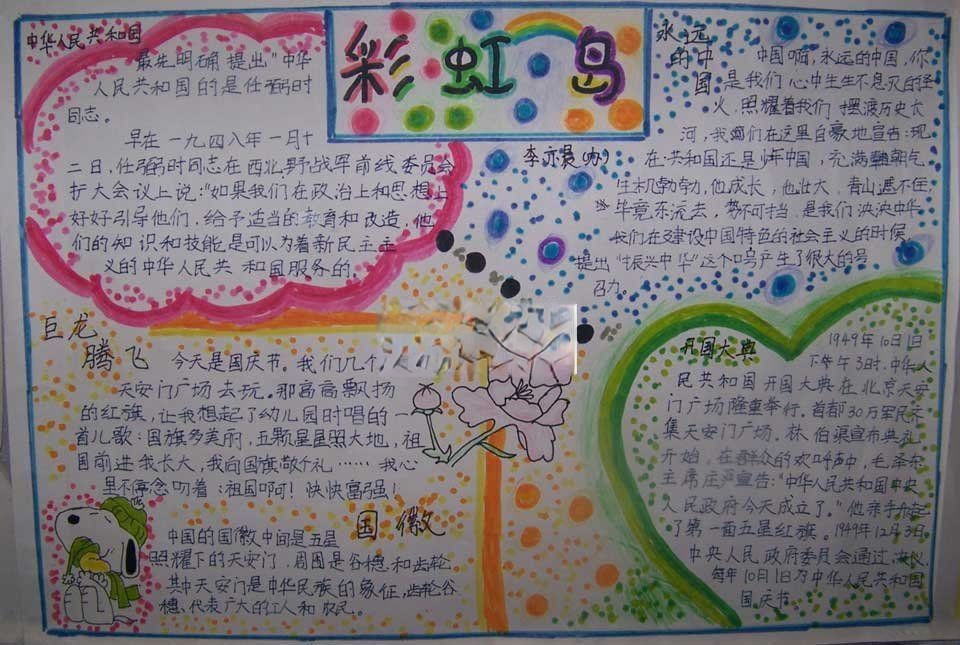 彩虹岛
中华人民共和国
最先明确提出"中华
人民共和国的是任弼时
同志。
早在一九四八年一月十
二日,任弼时同志在西北野战军前线委员会
扩大会议上说:"如果我们在政治上和思想上
好好引导他们,给予适当的教育和改造,他
们的知识和技能是可以为着新民主主
义的中华人民共和国服务的
永远
的中
国
中国啊,永远的中国,你
是我们心中生生不息灭的圣
火,照耀着我们,摆渡历史长
河,我们在这里自豪地宣告:现
在共和国还是少年中国,充满朝气
生机勃勃,他成长,他壮大,青山遮不住,
毕竟东流去,势不可挡,是我们泱泱中华
我们在建设中国特色的社会主义的时候
提出"振兴中华"这个口号产生了很大的号
召力。
巨龙
腾飞
今天是国庆节。我们几个
天安门广场去玩。那高高飘扬
的红旗,让我想起了幼儿园时唱的一
首儿歌:国旗多美丽,五颗星星照大地,祖
国前进我长大,我向国旗敬个礼……我心
里不停念叨着:祖国啊!快快富强!
国徽
中国的国徽中间是五星
照耀下的天安门,周围是谷穗和齿轮
其中天安门是中华民族的象征,齿轮谷
穗、代表广大的工人和农民。
开国大典
1949年10日1日
下午3时,中华人
民共和国开国大典在北京天安
门广场隆重举行。首都30万军民齐
集天安门广场。林伯渠宣布典礼
开始,在群众的欢呼声中,毛泽东
主席庄严宣告:"中华人民共和国中央
人民政府今天成立了。"他亲手升起
了第一面五星红旗。1949年12月3日,
中央人民政府委员会通过决议,
每年10月1日为中华人民共和国
国庆节